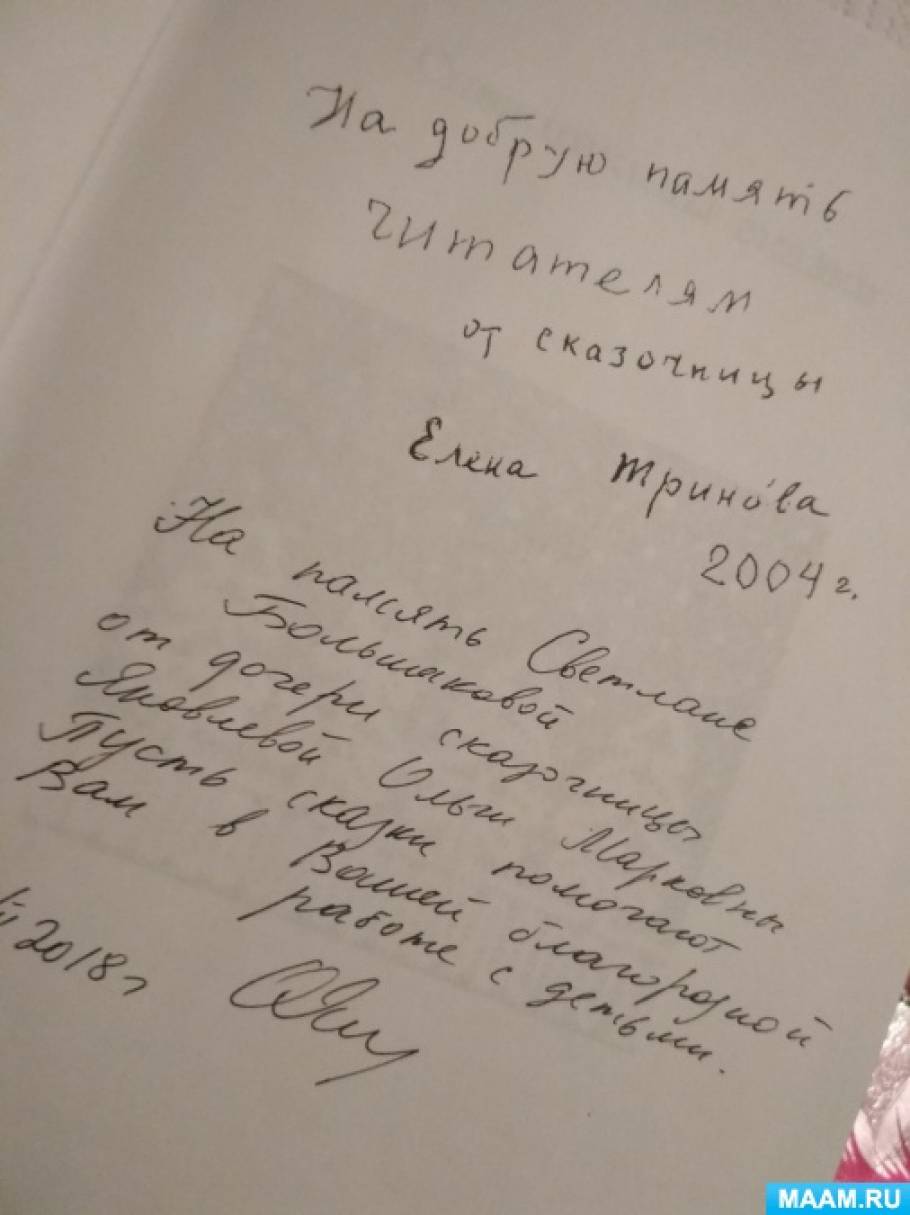 На добрую память
читателям
от сказочницы
Елена Тринова
2004 г.
На память Светлане
Большаковой
от дочери сказочницы
Яковлевой Ольги Марковны
Пусть сказки помогают
Вам в Вашей благородной
работе с детьми.
2018г
MAAM.RU